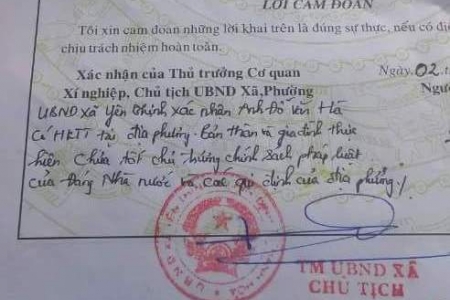 LỜI CAM ĐOAN
Tôi xin cam đoan những lời khai trên là đúng sự thực, nếu có đi
chịu trách nhiệm hoàn toàn.
Xác nhận của Thủ trưởng Cơ quan
Ngày.02.
Xí nghiệp, Chủ tịch UBND Xã,Phường
Ngư
UBND xã Yên Thịnh xác nhận Anh Đỗ Hà
Có HKTT tại địa phương. Bản thân và gia đình thực
hiện Chưa tốt chủ trương chính sách pháp luật
của Đảng Nhà nước và các qui định của địa phương./.
TM UBND XÃ
CHỦ TỊCH